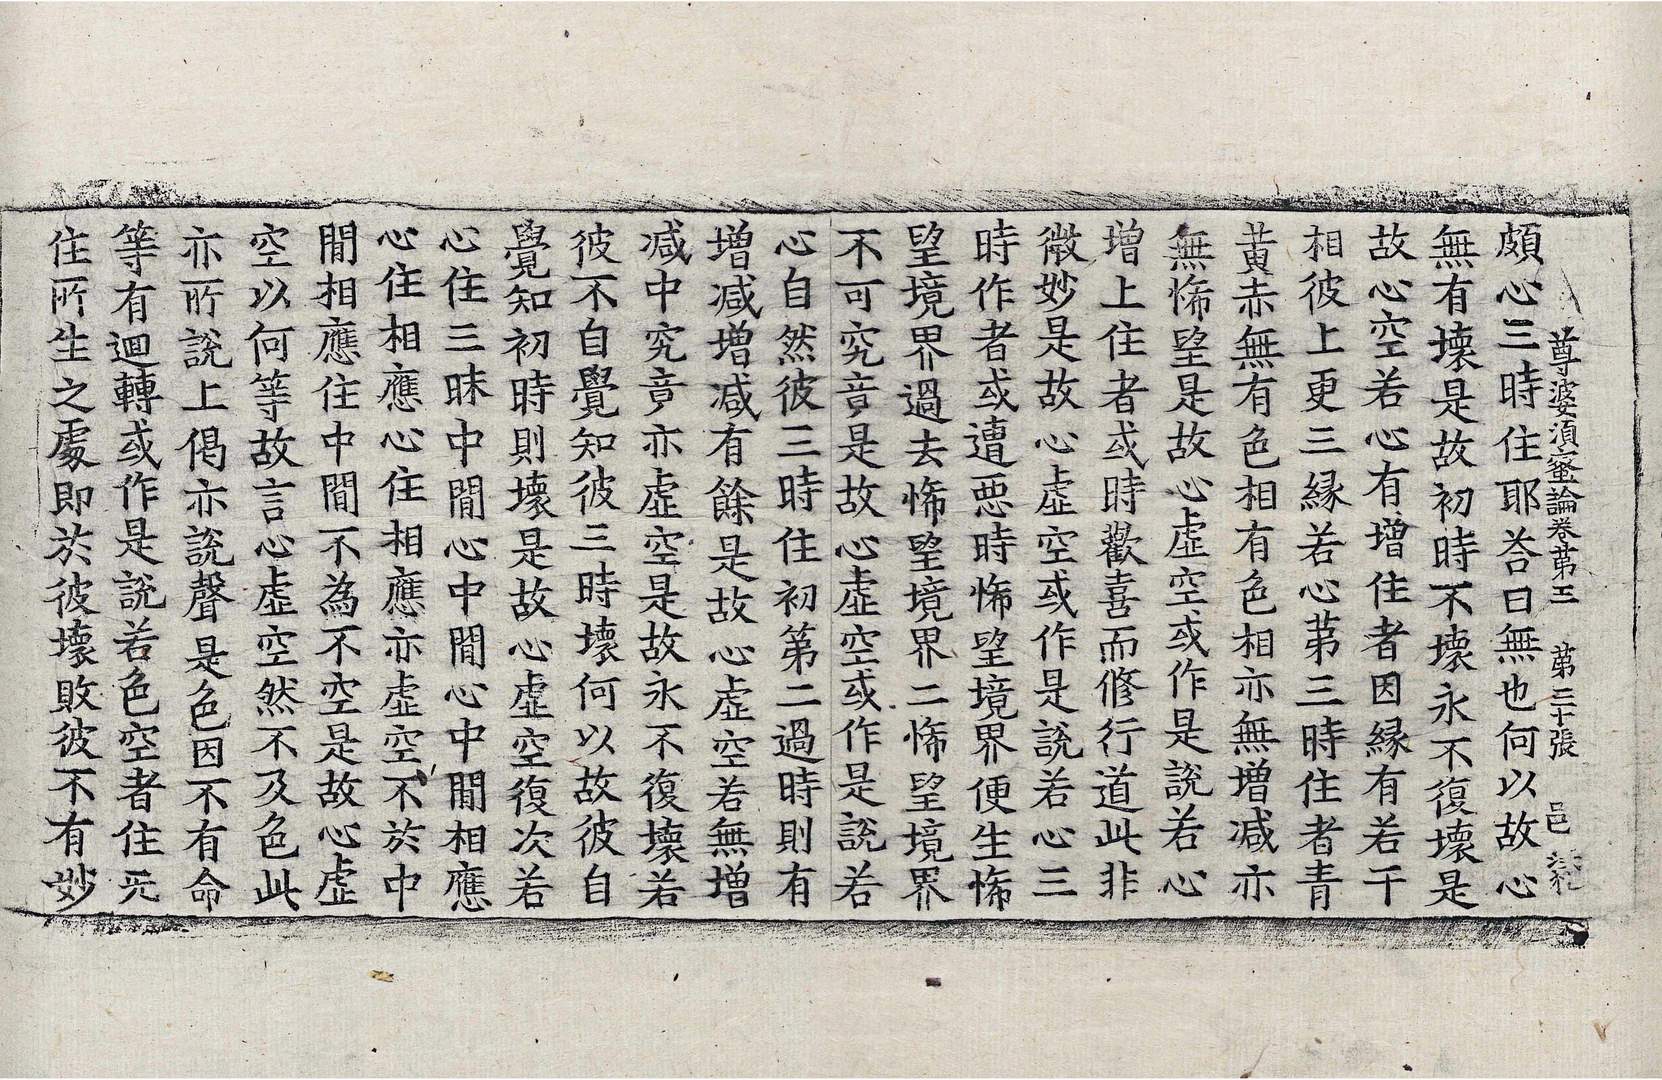 尊婆須蜜論卷苐三　苐二十張　邑
頗心三時住耶荅曰無也何以故心
無有壞是故初時不壞永不復壞是
故心空若心有增住者因緣有若干
相彼上更三緣若心苐三時住者青
黃赤無有色相有色相亦無增減亦
無悕望是故心虛空或作是說若心
增上住者或時歡喜而脩行道此非
微妙是故心虛空或作是說若心三
時作者或遭惡時悕望境界便生悕
望境界過去悕望境界二悕望境界
不可究竟是故心虛空或作是說若
心自然彼三時住初第二過時則有
增减增减有餘是故心虛空若無增
减中究竟亦虛空是故永不復壞若
彼不自覺知彼三時壞何以故彼自
覺知初時則壞是故心虛空復次若
心住三昧中間心中間心中間相應
心住相應心住相應亦虛空不於中
間相應住中間不為不空是故心虛
空以何等故言心虛空然不及色此
亦所說上偈亦說聲是色因不有命
等有迴轉或作是說若色空者住无
住所生之處即於彼壞敗彼不有妙